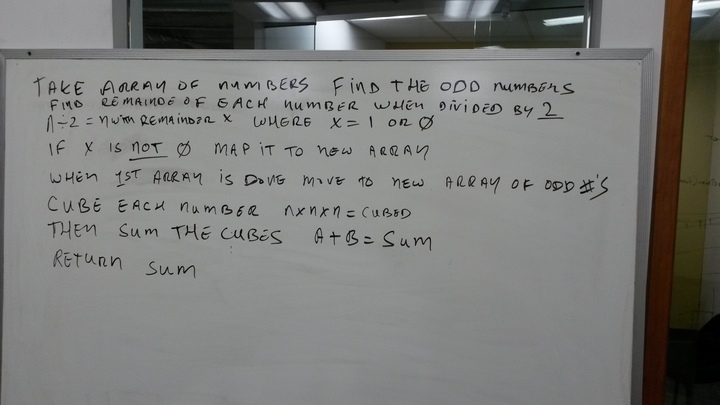 TAKE ARRAY OF NUMBERS FIND THE ODD NUMBERS
FIND REMAINDE OF EACH NUMBER WHEN DIVIDED BY 2
n÷2 = n WITH REMAINDER X WHERE X = 1 OR Ø
IF X IS NOT Ø MAP IT TO NEW ARRAY
WHEN 1ST ARRAY IS DONE MOVE TO NEW ARRAY OF ODD #'S
CUBE EACH NUMBER n×n×n = CUBED
THEN SUM THE CUBES A+B = SUM
RETURN SUM